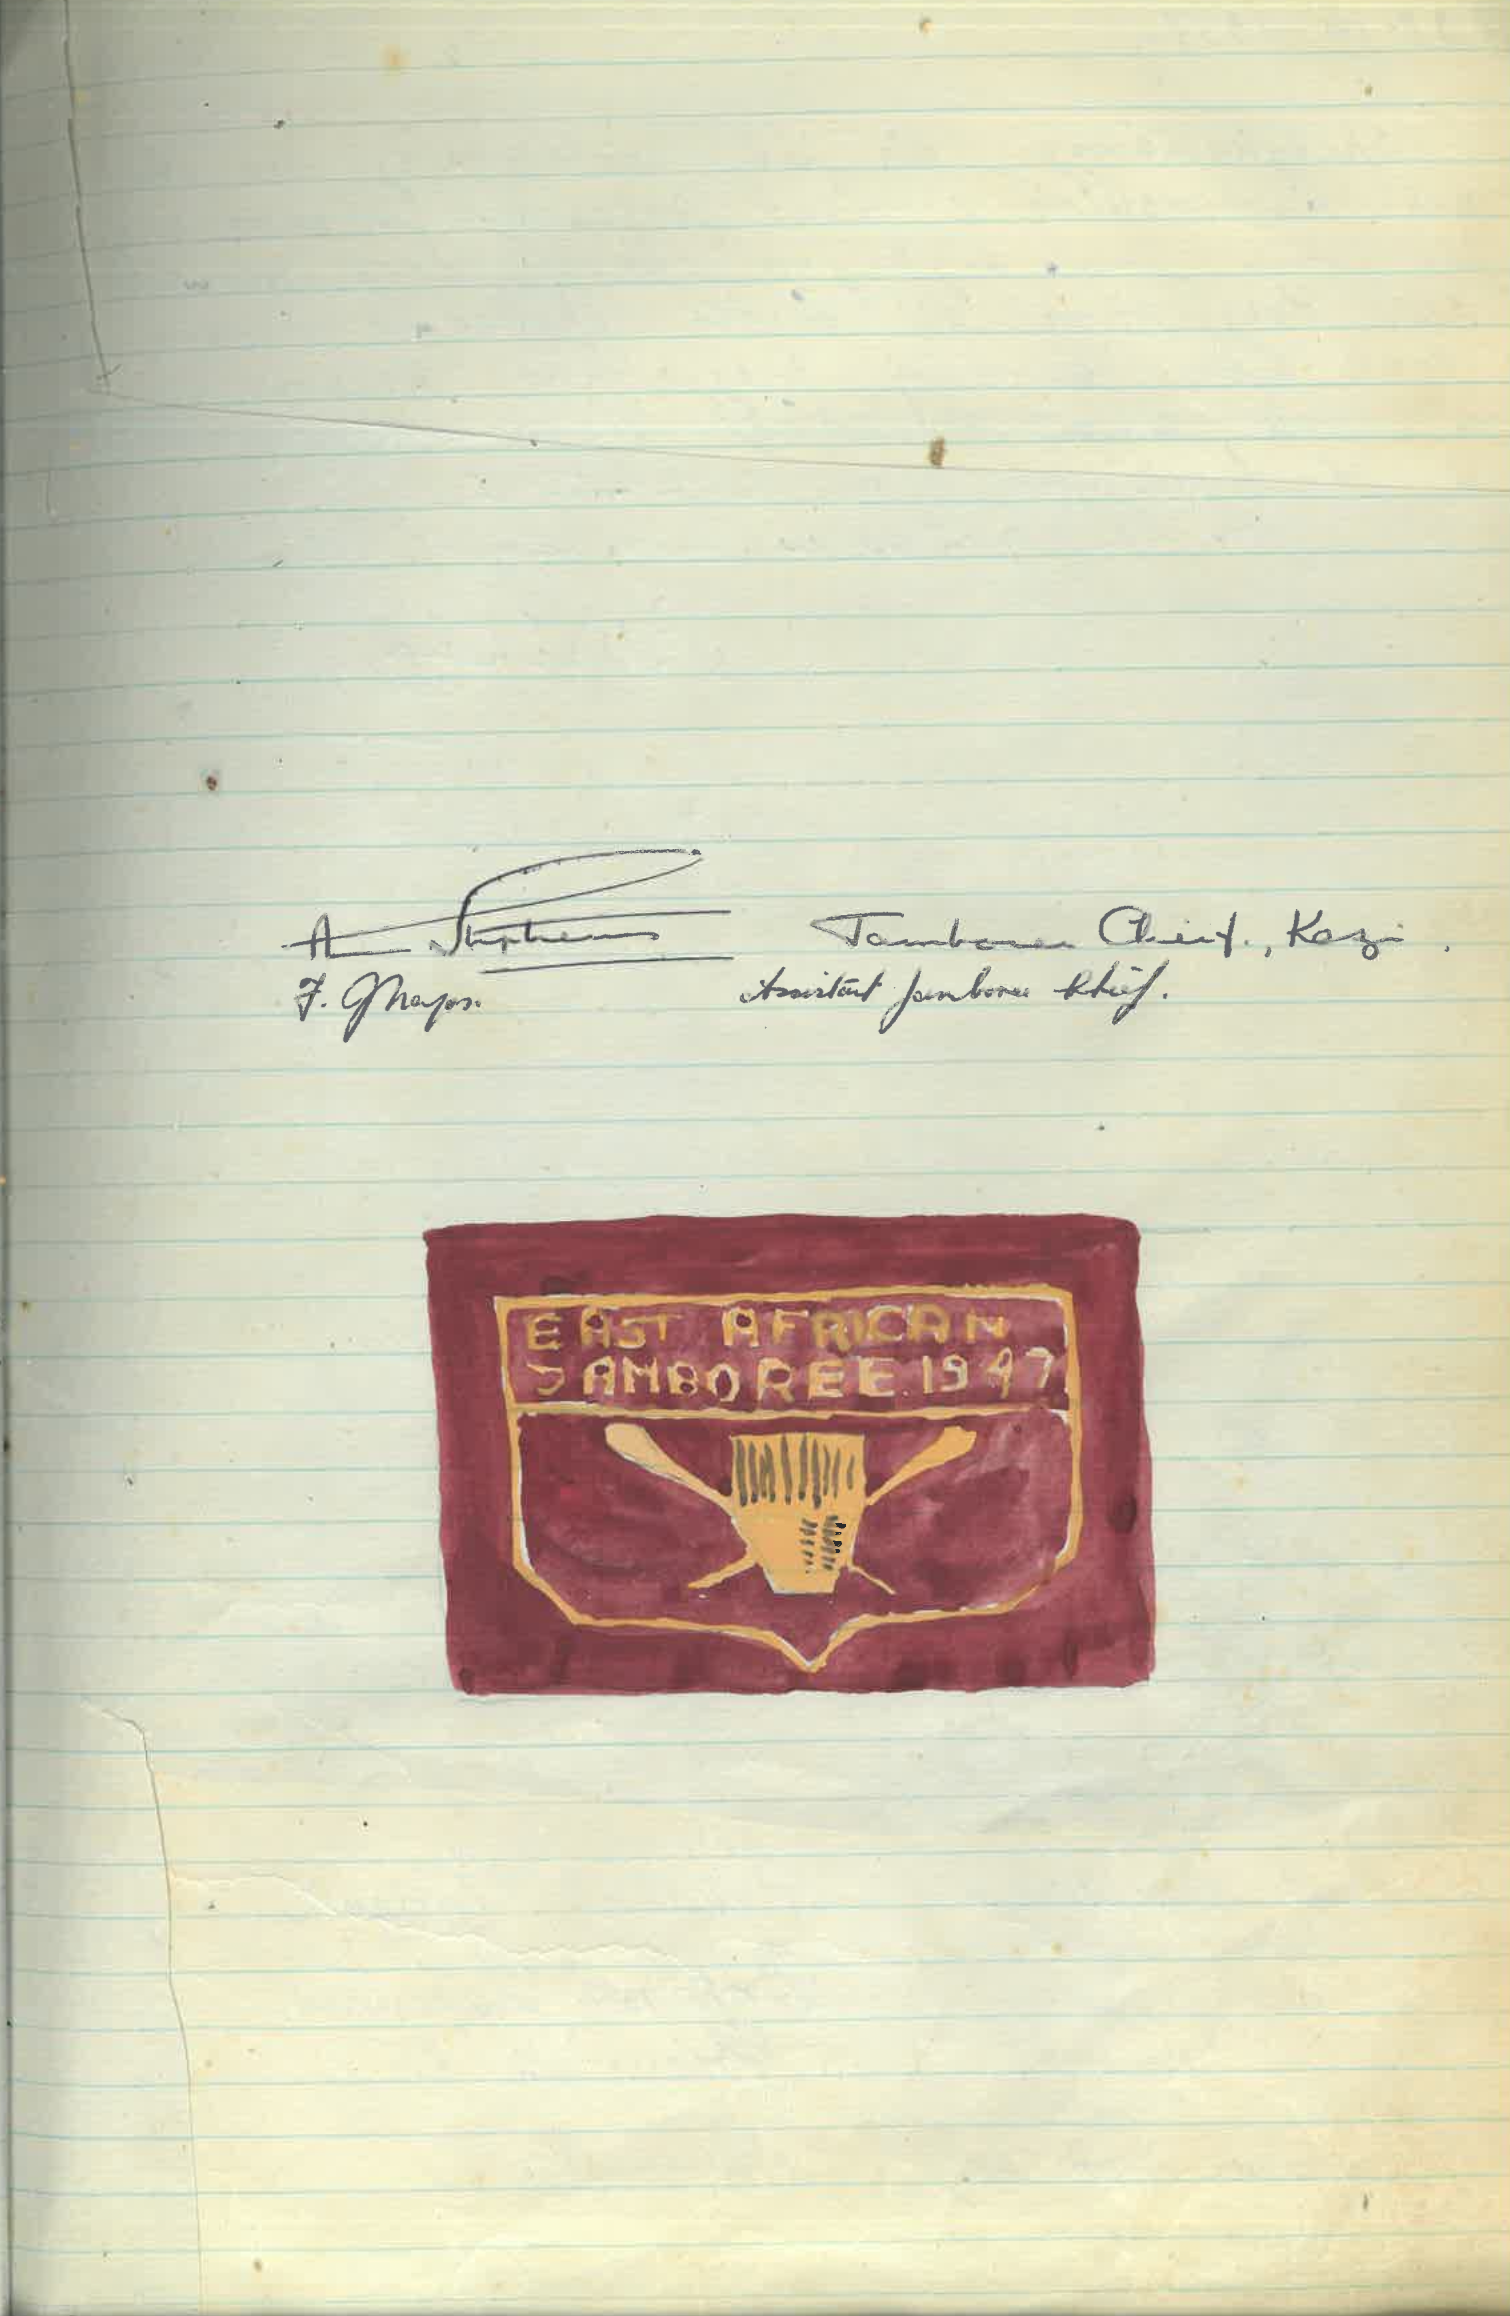 A Stephens Jamboree Chief., Kazi.
F. Jamboree Chief.
EAST AFRICAN
JAMBOREE.1947